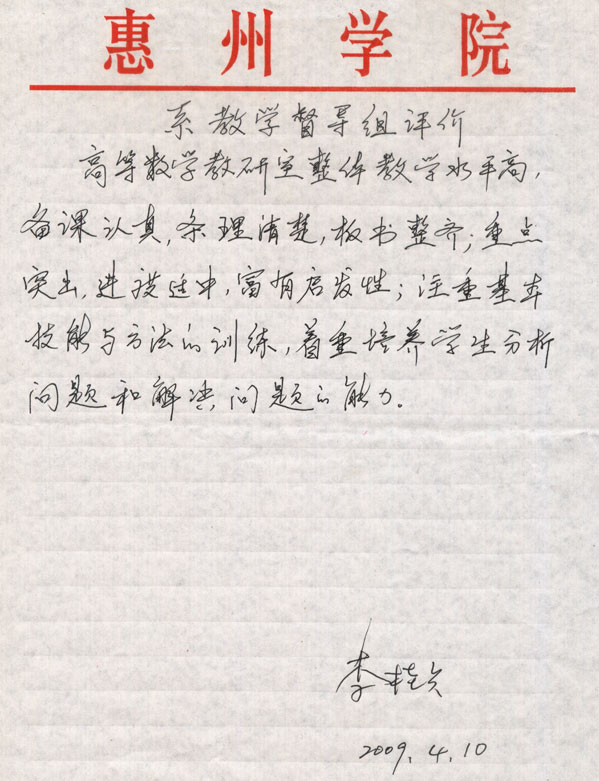 惠州学院
系教学督导组评价
高等数学教研室整体教学水平高,
备课认真,条理清楚,板书整齐;重点
突出,进程适中,富有启发性;注重基本
技能与方法的训练,着重培养学生分析
问题和解决问题的能力。
李桂
2009.4.10